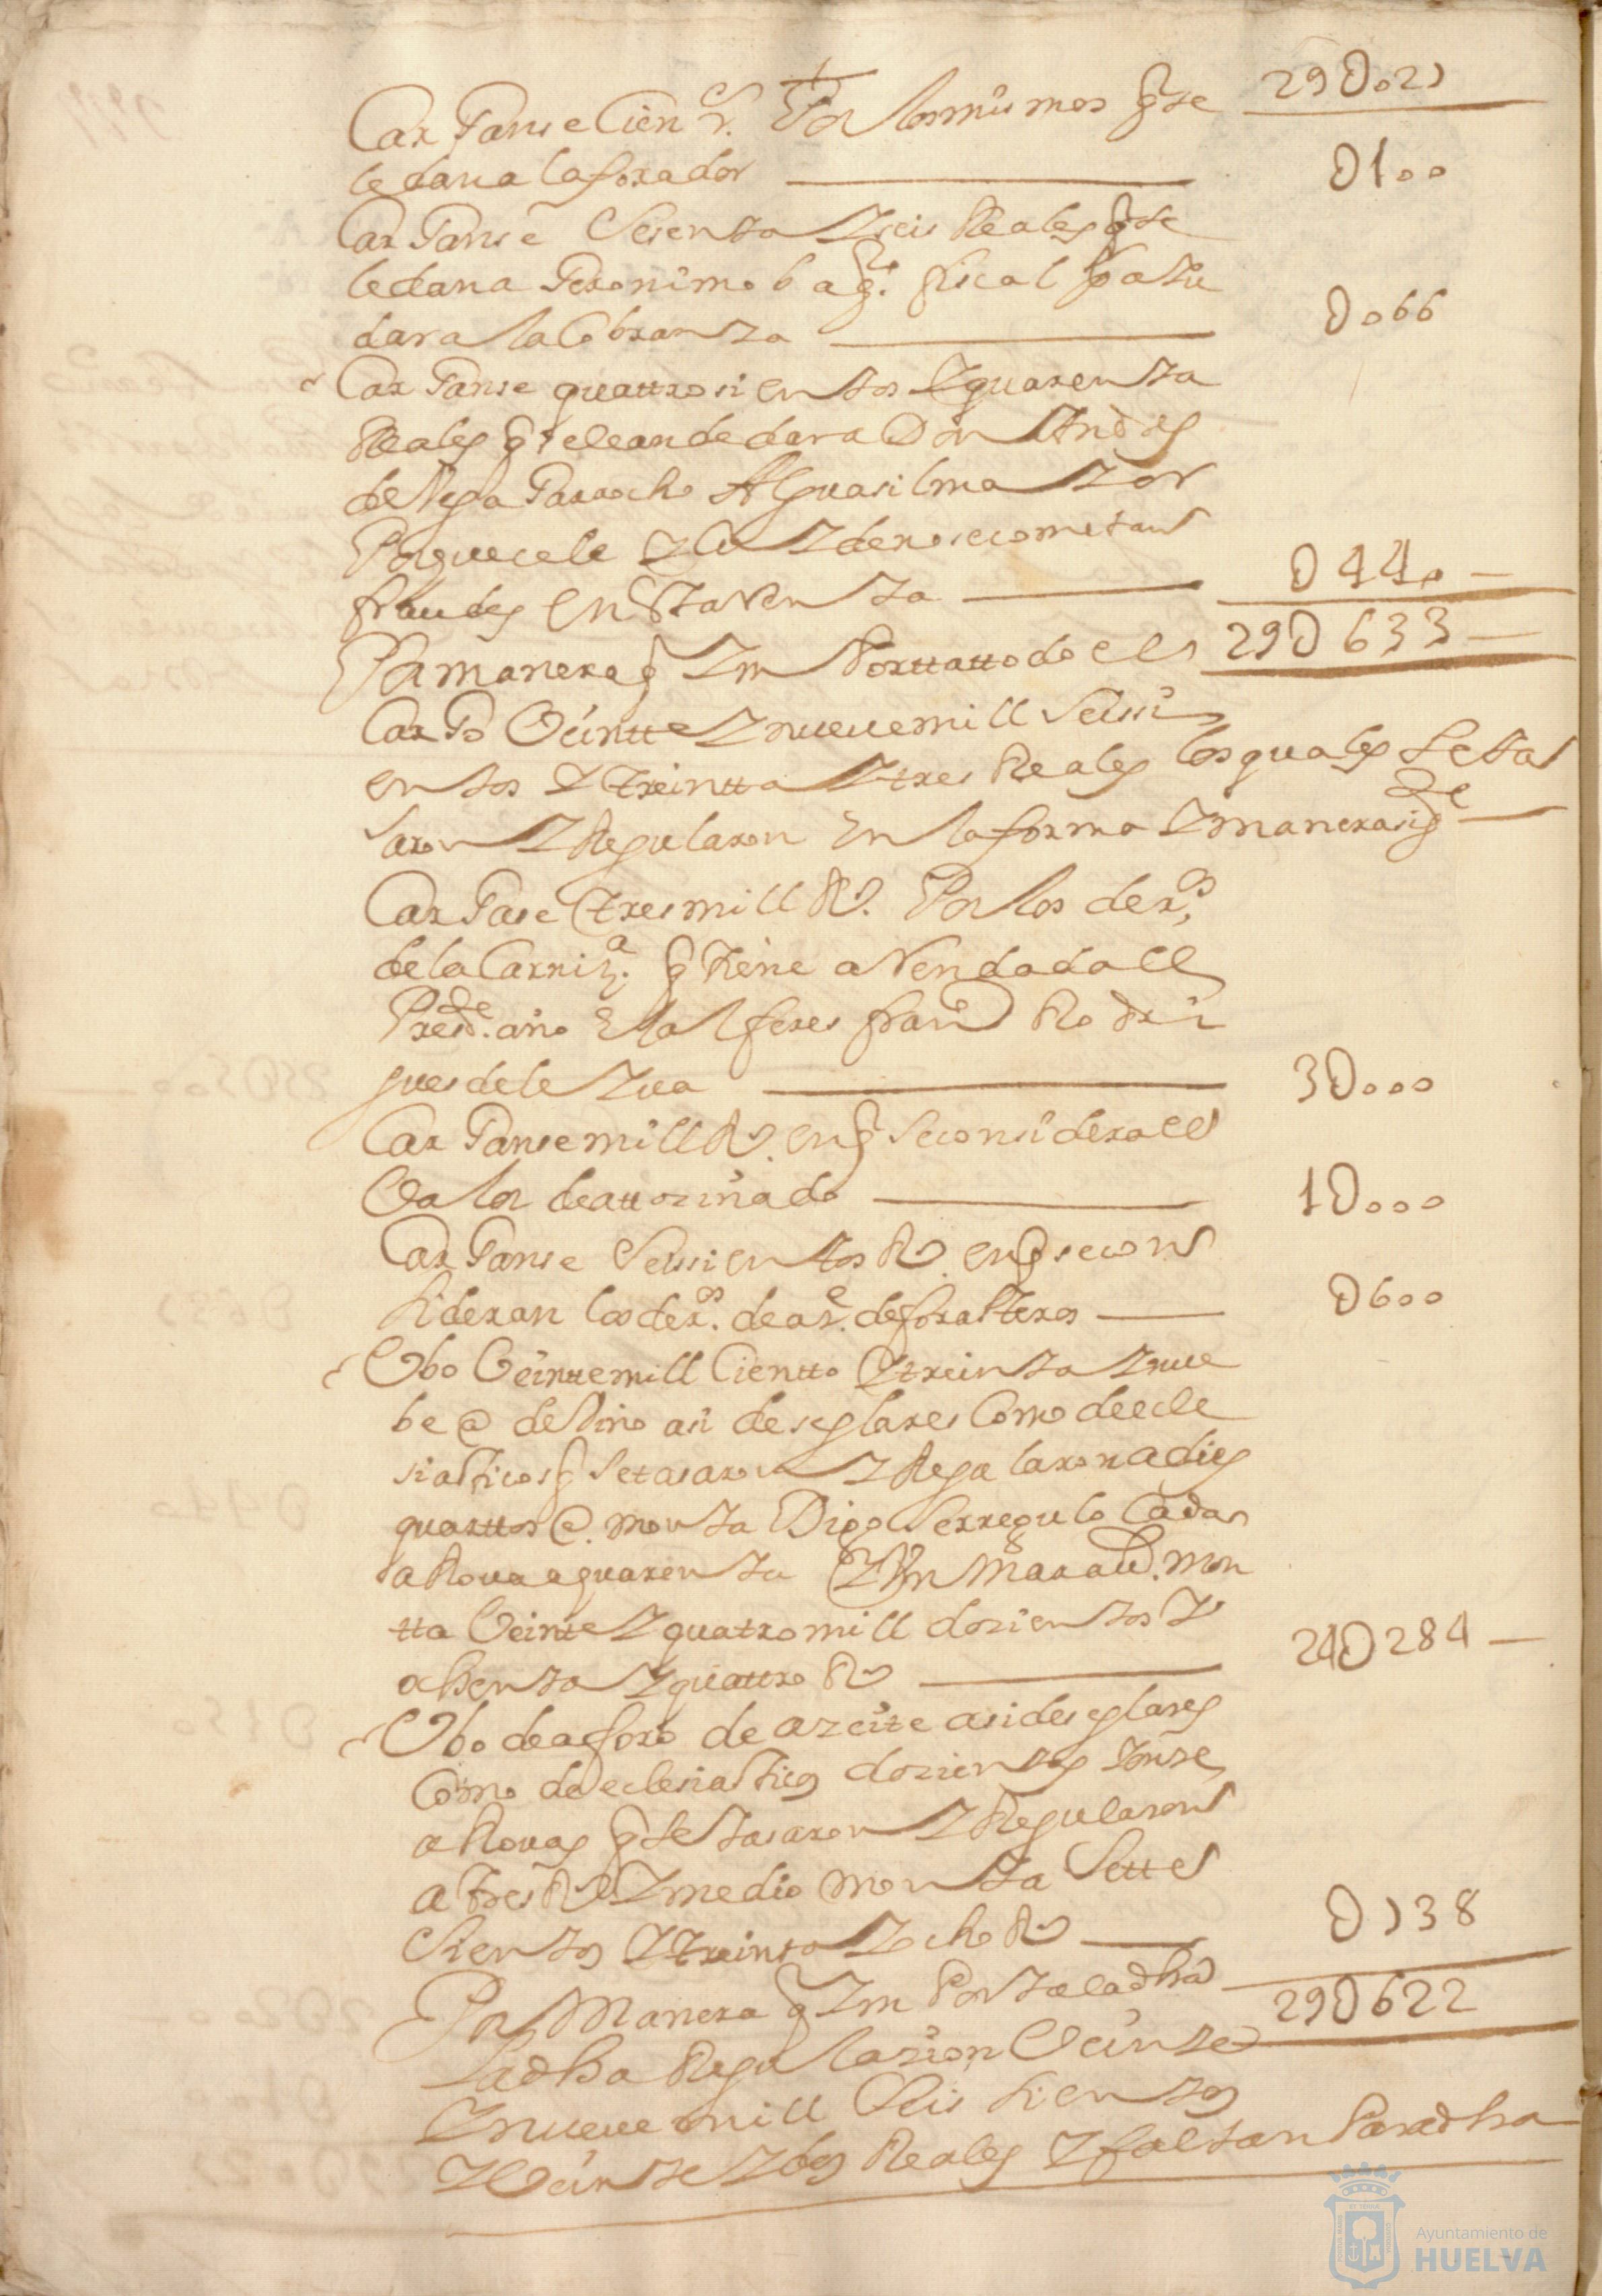 29U021
Carganse Cien Rs. Por los mismos q se
le dan al aforador
U100
Carganse Sesenta y seis Reales q se
le dan a Geronimo fiscal
U066
dar a la Cobranza
Carganse quattrosientos y quarenta
Reales q se le an de dar a Don Andres
de Vega Alguasil mayor
Porque cele y Cuyde no se cometan
fraudes en esta Renta
U440
29U633
Por manera q Ymportta todo el
Cargo Veintte y nueve mill Seissi
entos y treintta y tres Reales los quales se ta
saron y Regularon En la forma y manera sigte
Cargase tres mill Rs. Por los deros
de la Carniza. q tiene aRendada el
Presde. año El alferes Franco Rodri
gues de Leyva
3U000
Carganse mill Rs. en q se considera el
Valor de attozinado
1U000
Carganse Seissientos Rs en q se con
sideran los deros. de de forasteros
U600
Ubo Veinttemill Cientto y treinta y nue
be @ de Vino asi de seglares Como de ecle
siasticos q se tasaron y Regularon a dies
quarttos @. monta Digo se rregulo Cada
aRova a quarenta y Un Maravs. mon
tta Veinte y quatro mill dozientos y
ochenta y quattro Rs
24U284
Ubo de aforo de azeite asi de seglares
Como de eclesiasticos dozientos y onze
aRovas q se tasaron y Regularon
a tres Rs y medio monta Sette
Sientos y treinta y ocho Rs
U738
Por Manera q Ymportta la dha
29U622
Regulazion Veinte
y nueve mill Seis sientos
y Veinte y dos Reales y faltan Para dha
Ayuntamiento de
HUELVA